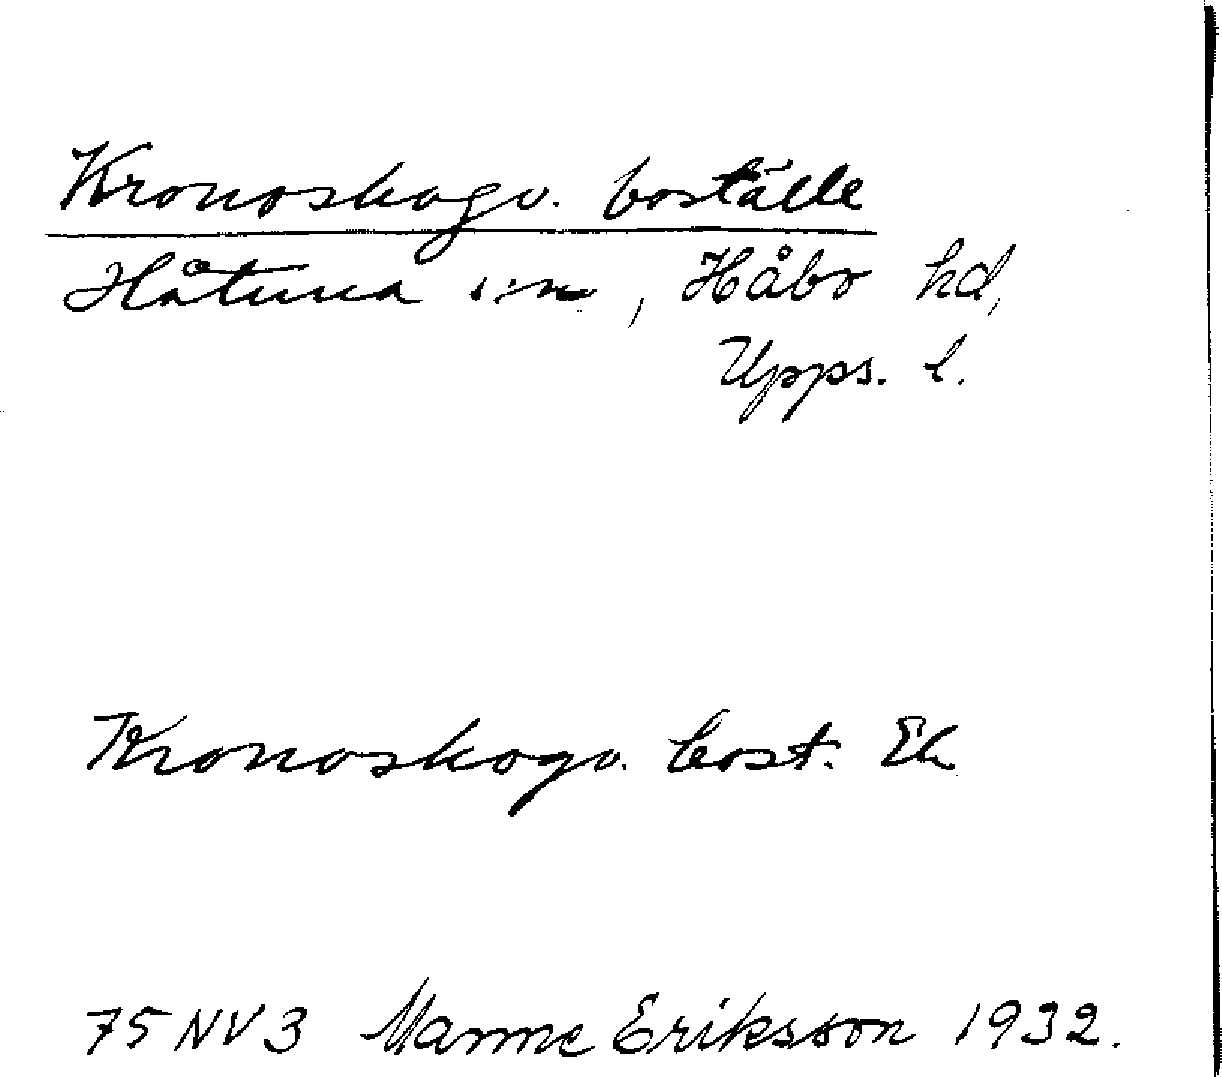 Kronoskogv. boställe
Håtuna sn, Håbo hd,
Upps. l.
Kronoskogv. bost. Ek
75 NV 3 Manne Eriksson 1932.